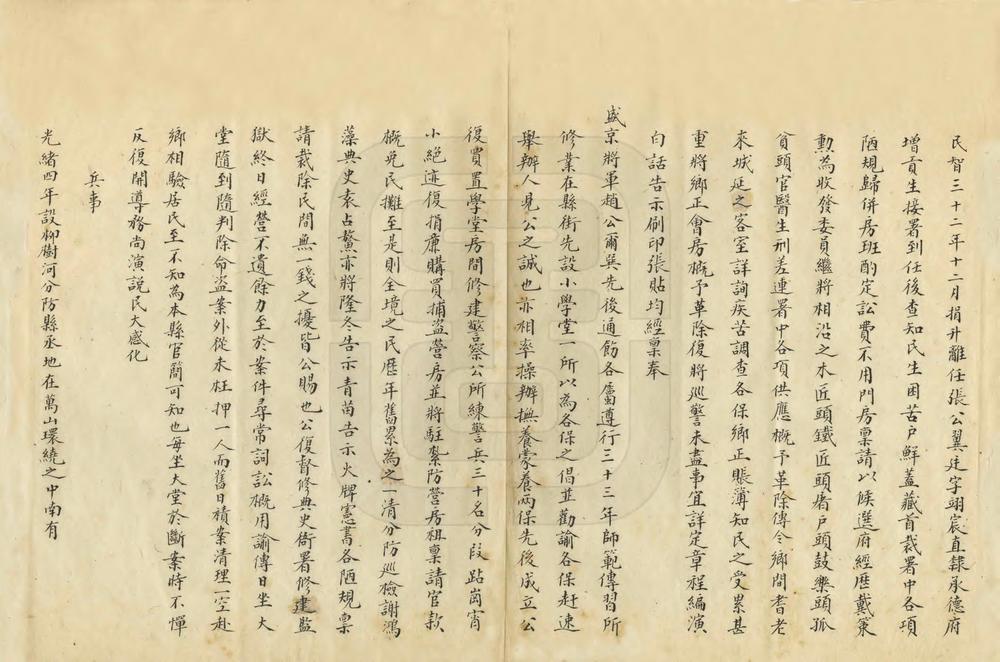 民智三十二年十二月捐升離任張公翼廷字翊宸直隸承德府
增貢生接署到任後查知民生困苦戶鮮蓋藏首裁署中各項
陋規歸併房班酌定訟費不用門房稟請以候選府經歷戴秉
勳為收發委員繼將相沿之木匠頭鐵匠頭屠戶頭鼓樂頭孤
貧頭官醫生刑差連署中各項供應概予革除傳令鄉間耆老
來城延之客室詳詢疾苦調查各保鄉正賬簿知民之受累甚
重將鄉正會房概予革除復將巡警未盡事宜詳定章程編演
白話告示刷印張貼均經稟奉
盛京將軍趙公爾巽先後通飭各屬遵行三十三年師範傳習所
修業在縣街先設小學堂一所以為各保之倡並勸諭各保赶速
舉辦人見公之誠也亦相率操辦撫養蒙養兩保先後成立公
復買置學堂房間修建警察公所練警兵三十名分段跕崗宵
小絕迹復捐廉購買捕盜營房並將駐紮防營房租稟請官款
概免民攤至是則全境之民歷年舊累為之一清分防巡檢謝鴻
藻典史袁占鰲亦將隆冬告示青苗告示火牌憲書各陋規稟
請裁除民間無一錢之擾皆公賜也公復督修典史衙署修建監
獄終日經營不遺餘力至於案件尋常詞訟概用諭傳日坐大
堂隨到隨判除命盜案外從未枉押一人而舊日積案清理一空赴
鄉相驗居民至不知為本縣官簡可知也每坐大堂於斷案時不憚
反復開導務尚演說民大感化
兵事
光緒四年設柳樹河分防縣丞地在萬山環繞之中南有